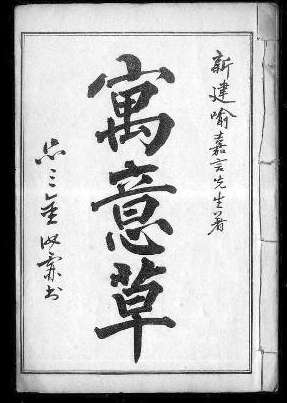 新建喻嘉言先生著
寓意草